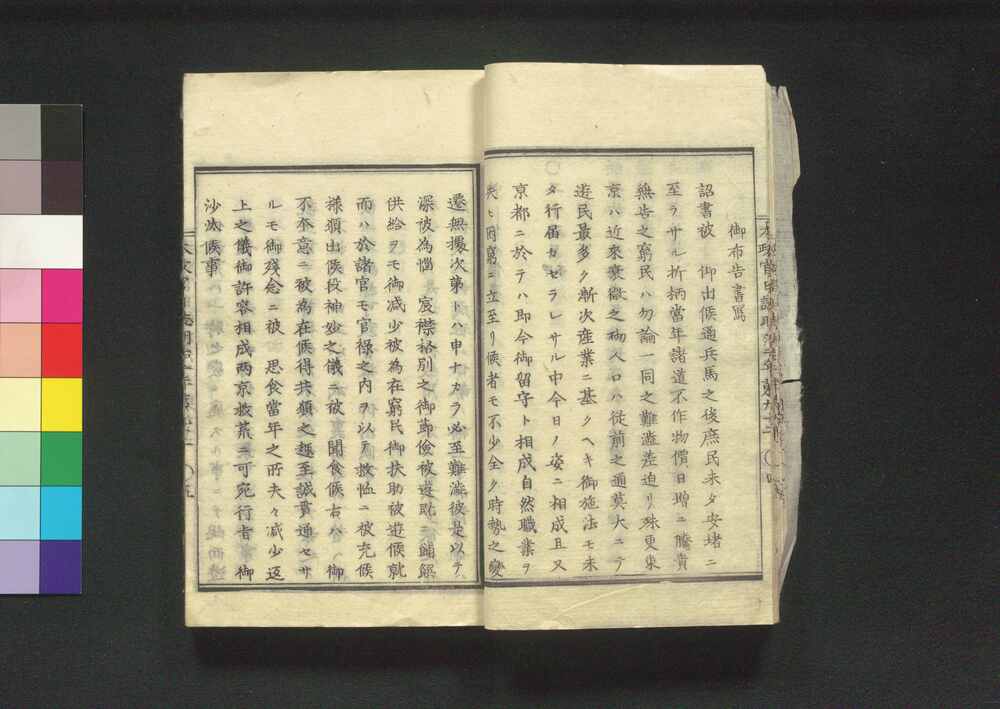 御布告書写
詔書被　仰出候通兵馬之後庶民未タ安堵ニ
至ラサル折柄当年諸道不作物價日増ニ騰貴
無告之窮民ハ勿論一同之難澁差迫リ殊更東
京ハ近來衰微之砌人口ハ従前之通莫大ニテ
遊民最多ク漸次産業ニ基クヘキ御施法モ未
タ行届カセラレサル中今日ノ姿ニ相成且又
京都ニ於テハ即今御留守ト相成自然職業ヲ
失ヒ困窮ニ立至リ候者モ不少全ク時勢之變
遷無據次第トハ申ナカラ必至難澁彼是以テ
深被為惱　宸襟格別之御節儉被遊既ニ鋪饌
供給ヲモ御减少被為在窮民御扶助被遊候就
而ハ於諸官モ官禄之内ヲ以テ救恤ニ被充候
様願出候段神妙之儀ニ被　聞食候右ハ　御
不本意ニ被為在候得共願之趣至誠貫通セサ
ルモ御殘念ニ被　思食當年之所夫々减少返
上之儀御許容相成両京救荒ニ可宛行旨　御
沙汰候事